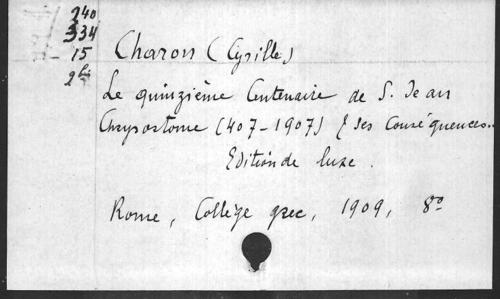 240
334
15
2 bis
Charon (Cyrille)
Le quinzième Centenaire de S. Jean
Chrysostome (407-1907) & ses conséquences..
Edition de luxe.
Rome, Collège grec, 1909, 8º